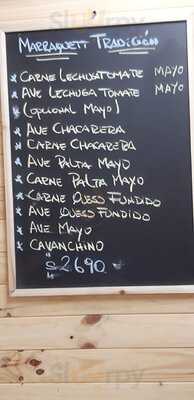 Marraquett Tradición
* Carne Lechuga Tomate Mayo
* Ave Lechuga Tomate Mayo
* (opcional Mayo)
* Ave Chacarera
* Carne Chacarera
* Ave Palta Mayo
* Carne Palta Mayo
* Carne Queso Fundido
* Ave Queso Fundido
* Ave Mayo
* Cavanchino
$2690